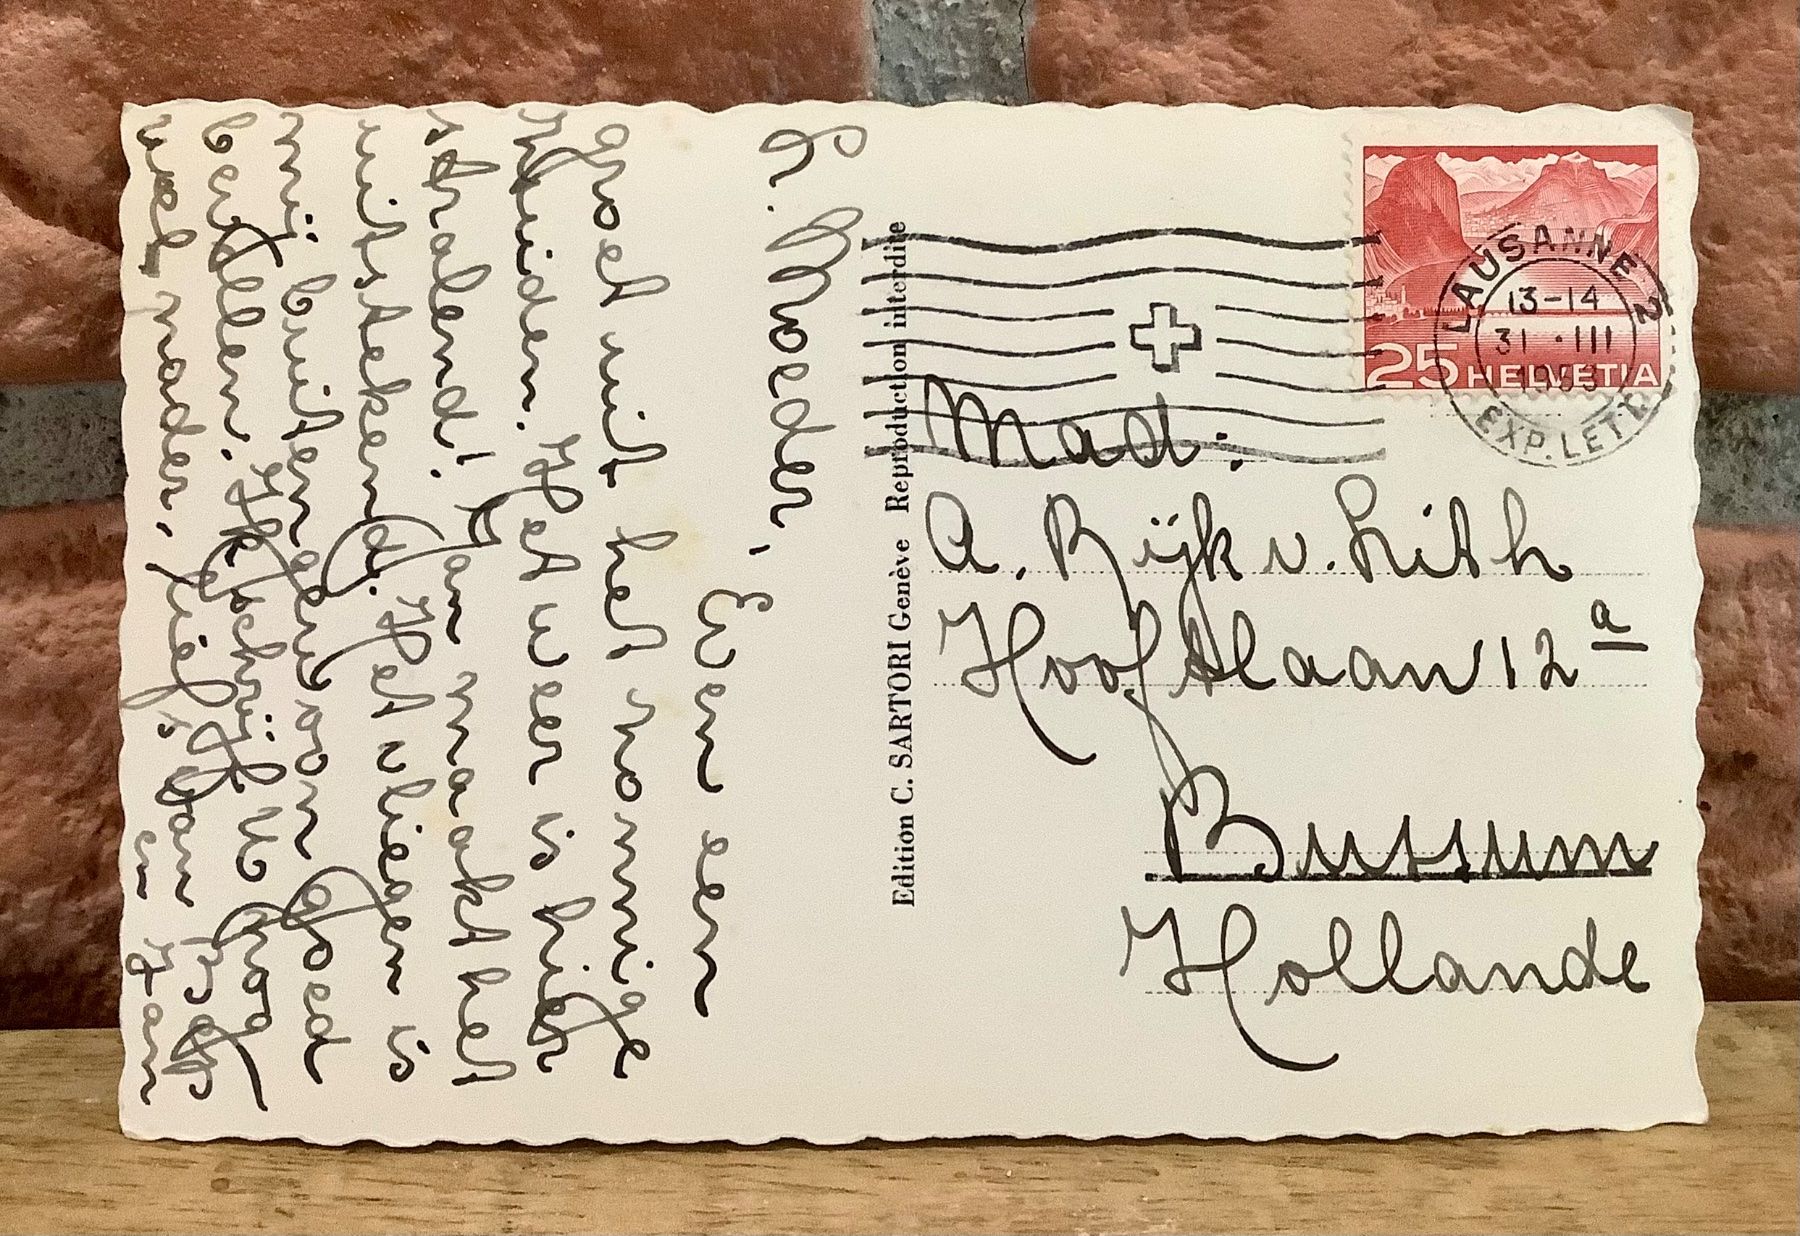 L. Moeder, Even een
groet uit het zonnige
Zuiden. Het weer is hier
stralend! Jan maakt het
uitstekend. Het vliegen is
mij buitengewoon goed
bevallen. Ik schrijf U nog
wel nader. Liefs van Bep
en Jan
Edition C. SARTORI Genève Reproduction interdite
LAUSANNE 2
13-14
31 · III
1953
EXP. LETT.
25 HELVETIA
Mad:
A. Rijk v. Lith
Hooftlaan 12 a
Bussum
Hollande